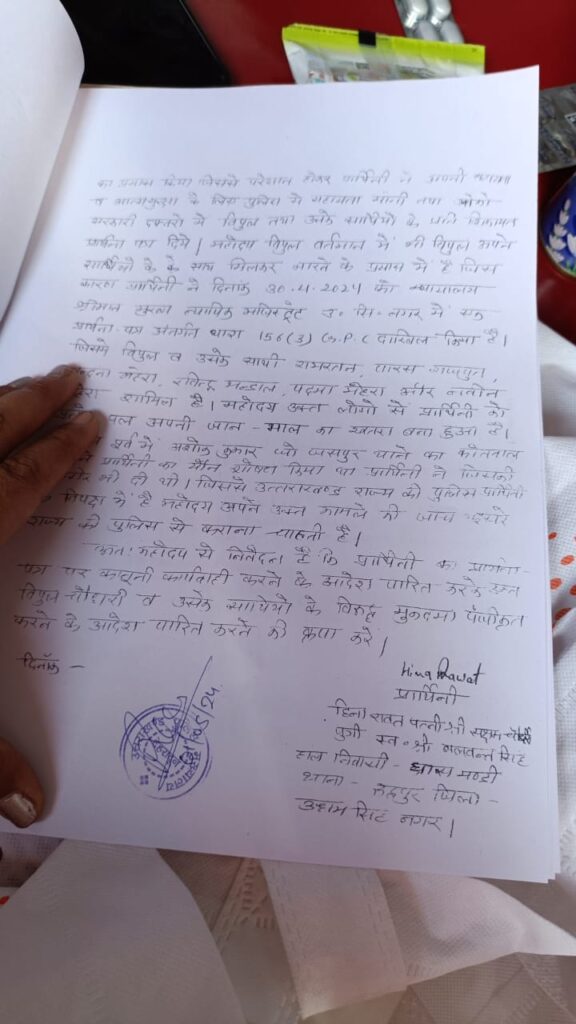 का प्रयास किया जिससे परेशान होकर प्रार्थिनी ने अपनी
व आत्मसुरक्षा के लिए पुलिस से सहायता मांगी तथा
सरकारी दफ्तरो में विपुल तथा उनके साथियो के प्रति शिकायत
प्रार्थना पत्र दिये | महोदय विपुल वर्तमान में भी विपुल अपने
साथियो के के साथ मिलकर मारने के प्रयास में है जिस
कारण प्रार्थिनी ने दिनांक 30.4.2024 को न्यायालय
न्यायिक मजिस्ट्रेट उ० सि० नगर में एक
प्रार्थना पत्र अंतर्गत धारा 156(3) Cr.P.C दाखिल किया है।
जिसमे विपुल व उसके साथी रामरतन, पारस
मेहरा, रविन्द्र मन्डाल, पदमा मेहरा और नवीन
शामिल है। महोदय उक्त लोगो से प्रार्थिनी को
पल अपनी जान-माल का खतरा बना हुआ है।
पूर्व में अशोक कुमार जो जसपुर थाने का कोतवाल
प्रार्थिनी का यौन शोषण किया था प्रार्थिनी ने जिसकी
भी दी थी। जिससे उत्तराखण्ड राज्य की पुलिस प्रार्थिनी
के विपक्ष में है महोदय अपने उक्त मामले की जांच दूसरे
राज्य की पुलिस से कराना चाहती है।
अतः महोदय से निवेदन है कि प्रार्थिनी का प्रार्थना-
पत्र पर कानूनी कार्यवाही करने के आदेश पारित करके उक्त
विपुल चौधरी व उसके साथियो के विरुद्ध मुकदमा पंजीकृत
करने के आदेश पारित करने की कृपा करें।
दिनाँक -
Hina Rawat
प्रार्थिनी
हिना रावत पत्नी श्री
पुत्री स्व० श्री बलवन्त सिंह
हाल निवासी - घास मण्डी
थाना - जिला -
उधम सिंह नगर।
/05/24